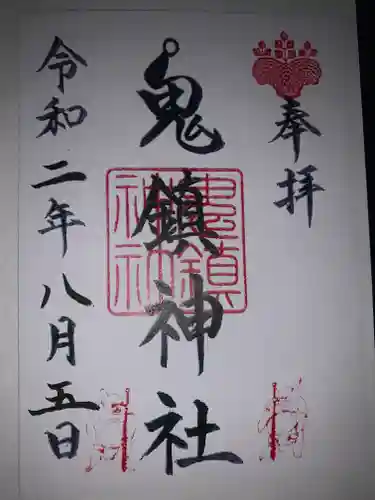 奉拝
鬼鎮神社
鬼鎮
神社
令和二年八月五日